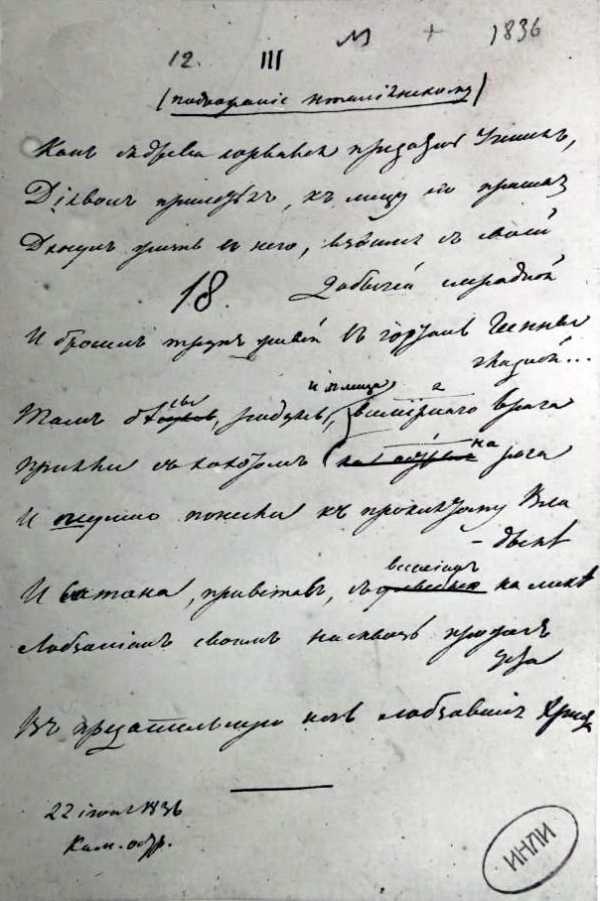 12. III М + 1836
(подражаніе италіанскому)
Какъ съ древа сорвался предатель ученикъ,
Діаволъ прилетѣлъ, къ лицу его приникъ
Дхнулъ жизнь въ него, взвился съ своей
добычей смрадной
18.
И бросилъ трупъ живой въ гортань Геенны
гладной...
Тамъ бѣсы, радуясь и плеща
всемірнаго врага
Пріяли съ хохотомъ на рога
И шумно понесли къ проклятому Вла
-дыкѣ
И Сатана, привставъ, съ веселіемъ на ликѣ
Лобзаніемъ своимъ насквозь прожегъ
уста
Въ предательскую ночь лобзавшія Христа
22 іюня 1836
Кам. остр.
ИНЛИ